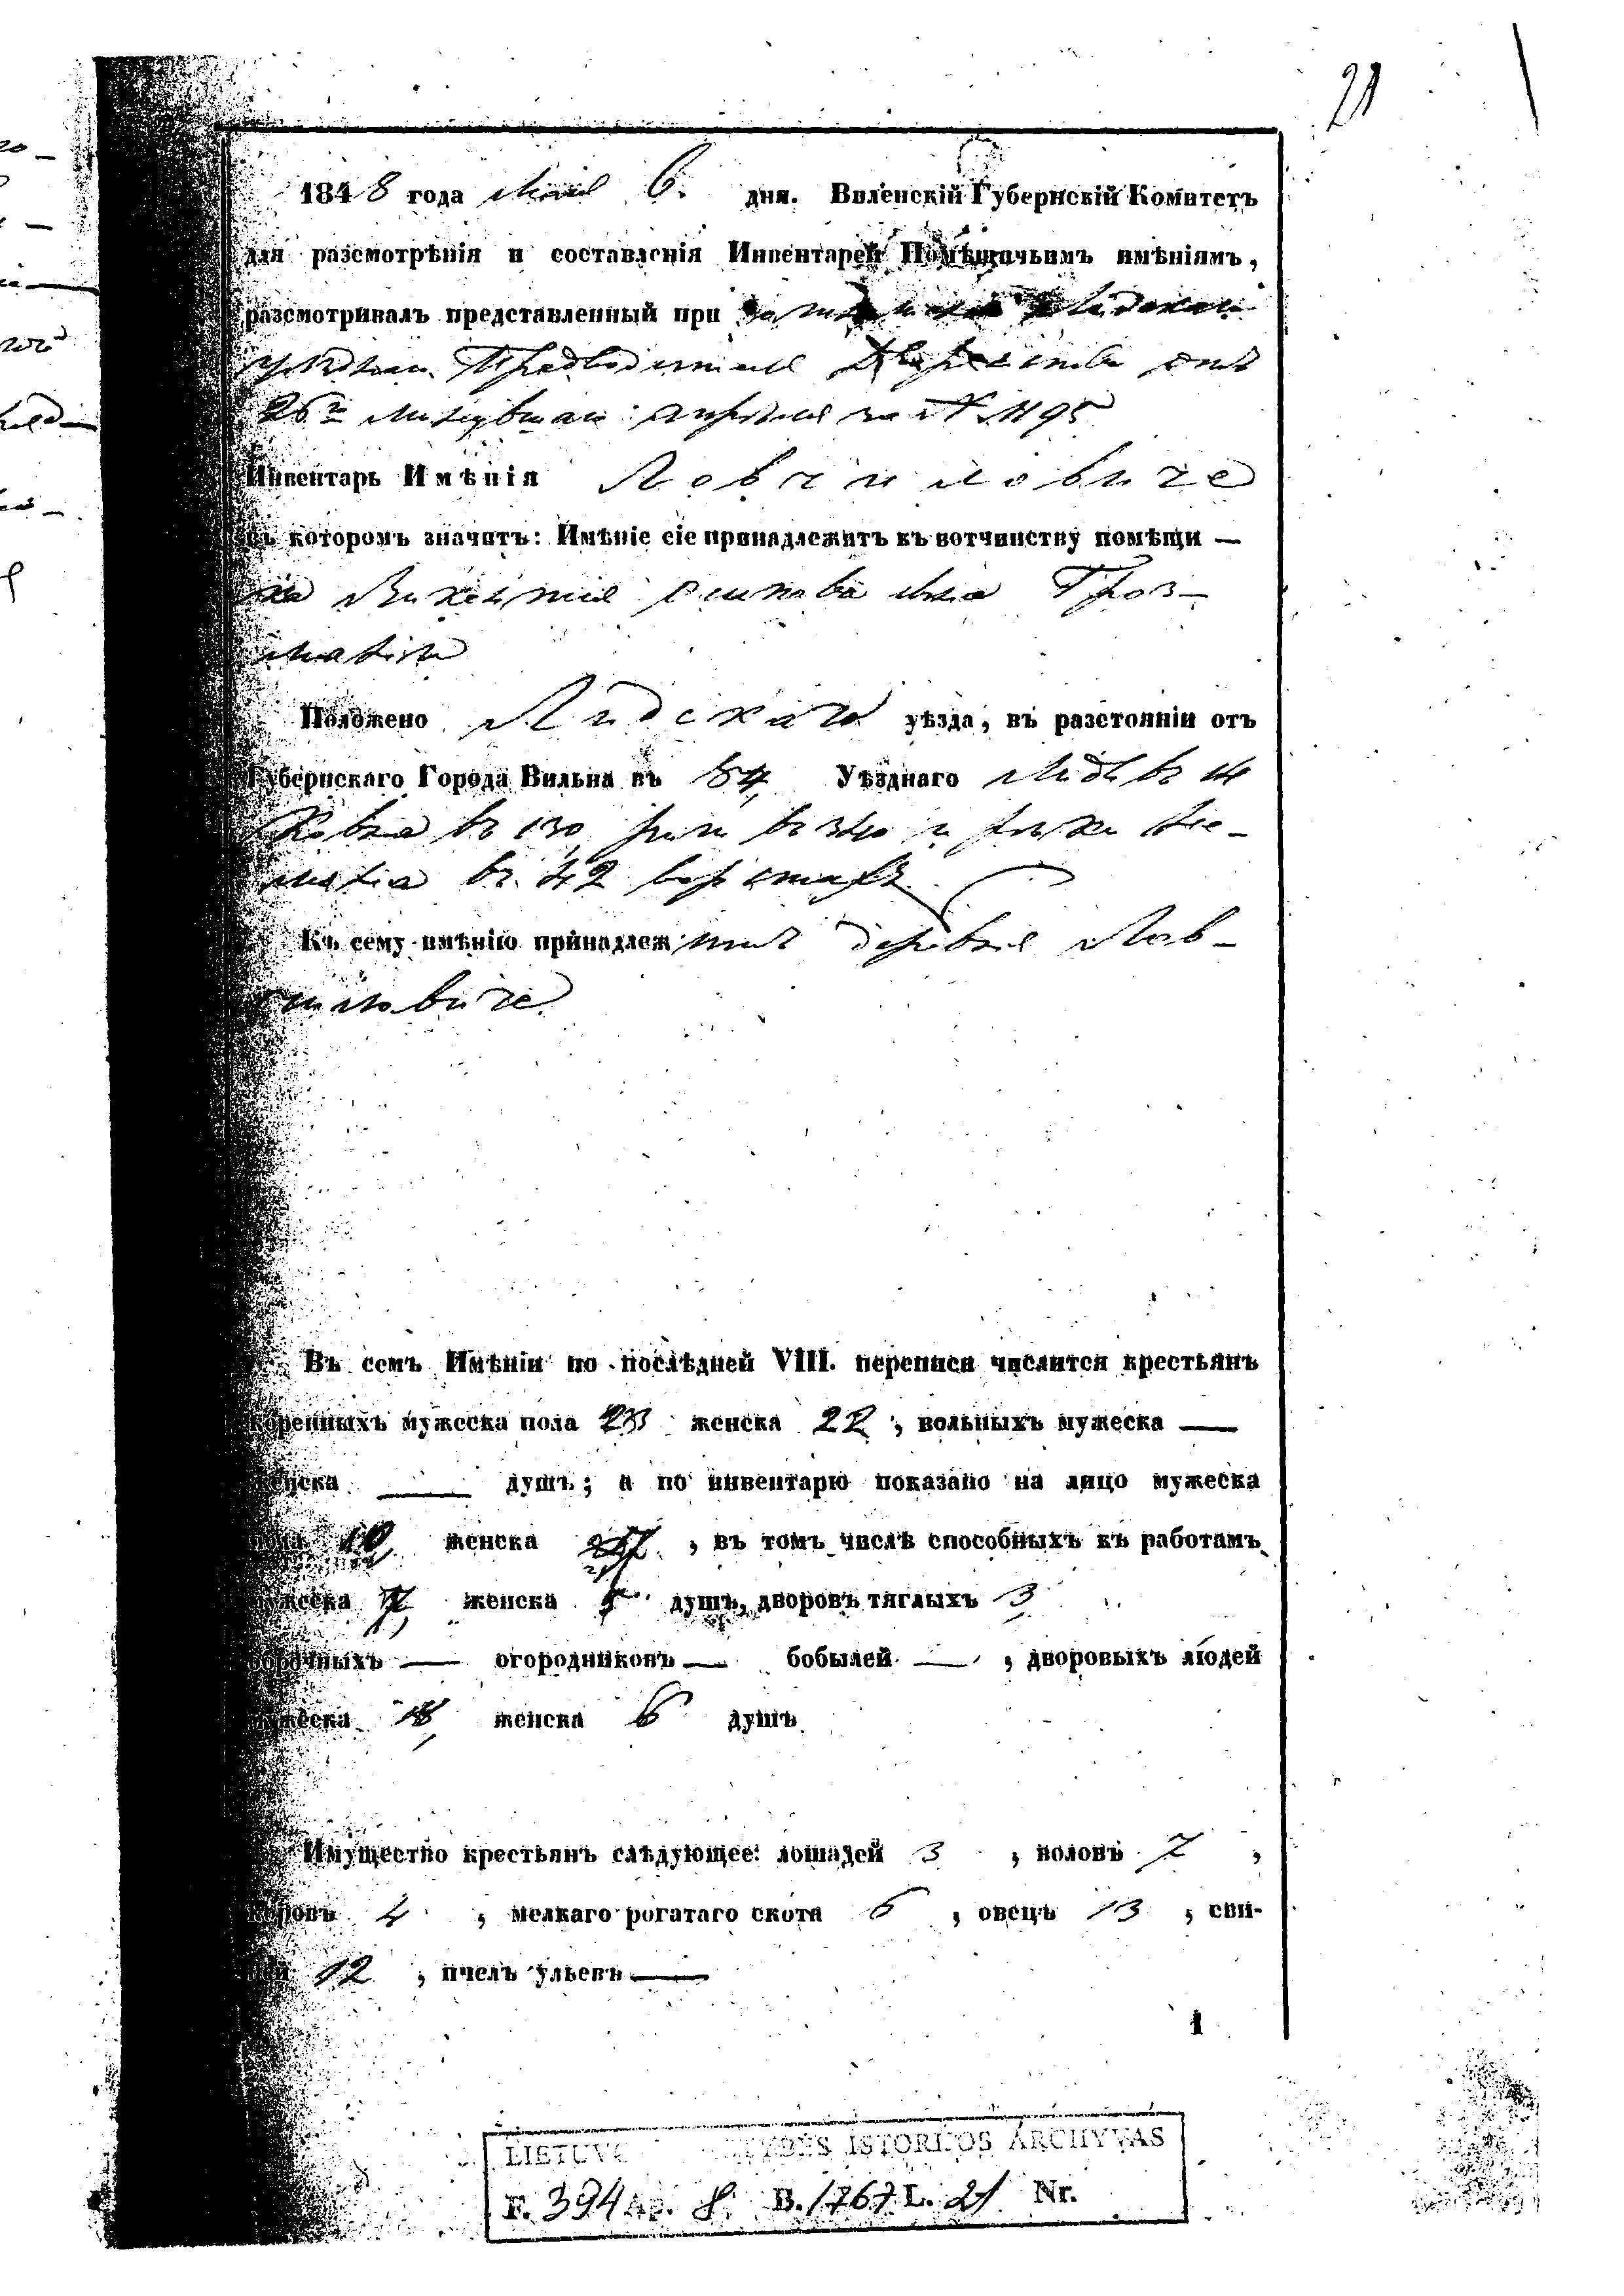 21
1848 года Мая 6. дня. Виленскій Губернскій Комитетъ
для разсмотрѣнія и составленія Инвентарей Помѣщичьимъ имѣніямъ,
разсматривалъ представленный при Лидскаго
уѣзднаго Предводителя Дворянства отъ
26го минувшаго апрѣля за № 1195
Инвентарь Имѣнія Ловчиловиче
въ которомъ значитъ: Имѣніе сіе принадлежитъ къ вотчинству помѣщи —
ка Викентія Осипова сына Гроз-
Положено Лидскаго уѣзда, въ разстояніи отъ
Губернскаго Города Вильна въ 84, Уѣзднаго Лиды въ 14
Ковна въ 130, Риги въ и рѣки Не-
мана въ 42 верстахъ
Къ сему имѣнію принадлежитъ деревня Лов-
чиловиче
Въ семъ Имѣніи по послѣдней VIII. переписи числится крестьянъ
коренныхъ мужеска пола 23 женска 22, вольныхъ мужеска —
женска — душъ; а по инвентарю показано на лицо мужеска
пола женска , въ томъ числѣ способныхъ къ работамъ
мужеска 7, женска 5 душъ, дворовъ тяглыхъ 3
— огородниковъ — бобылей — , дворовыхъ людей
мужеска женска 6 душъ
Имущество крестьянъ слѣдующее: лошадей 3 , воловъ 7 ,
коровъ 4 , мелкаго рогатаго скота 6 , овецъ 13 , сви-
ней 12 , пчелъ ульевъ —
1
LIETUVOS ISTORIJOS ARCHYVAS
F. 394 Ap. 8. B. 1767 L. 21 Nr.